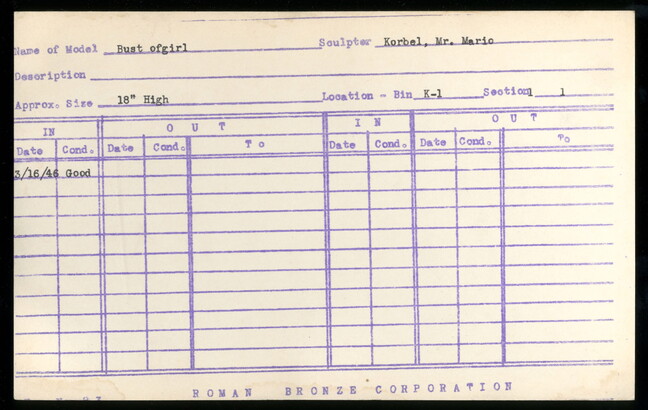 Name of Model Bust ofgirl Sculptor Korbel, Mr. Mario
Description
Approx. Size 18" High Location - Bin K-1 Section1 1
IN OUT IN OUT
Date Cond. Date Cond. To Date Cond. Date Cond. To
3/16/46 Good
ROMAN BRONZE CORPORATION